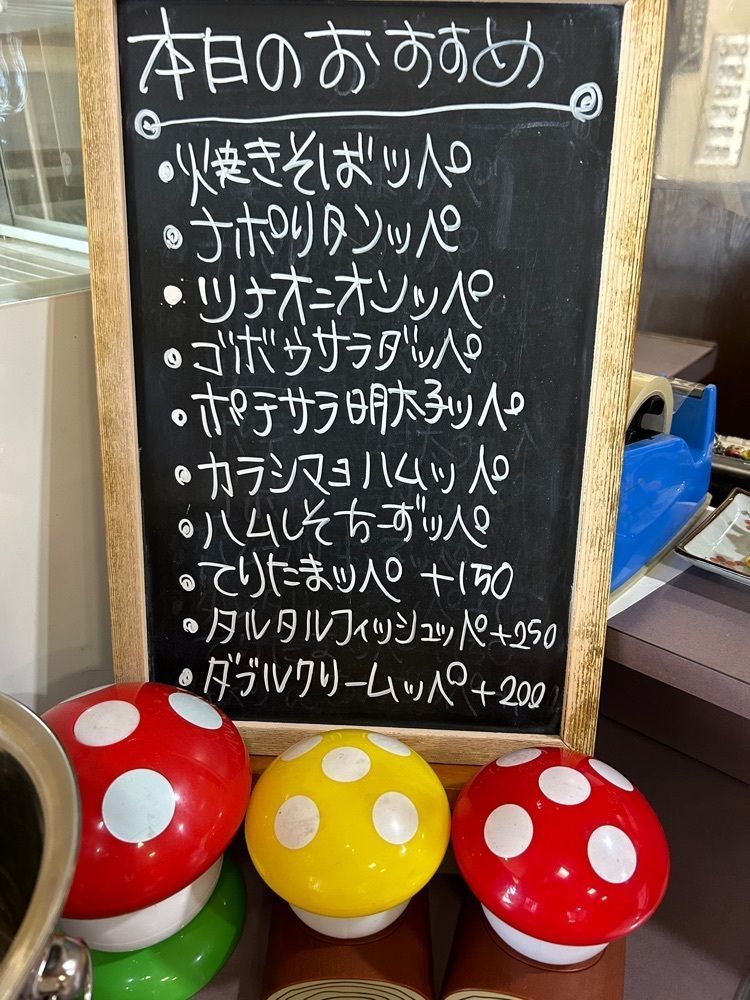 本日のおすすめ
焼きそばッペ
ナポリタンッペ
ツナオニオンッペ
ゴボウサラダッペ
ポテサラ明太子ッペ
カラシマヨハムッペ
ハムしそちーずッペ
てりたまッペ +150
タルタルフィッシュッペ+250
ダブルクリームッペ+200